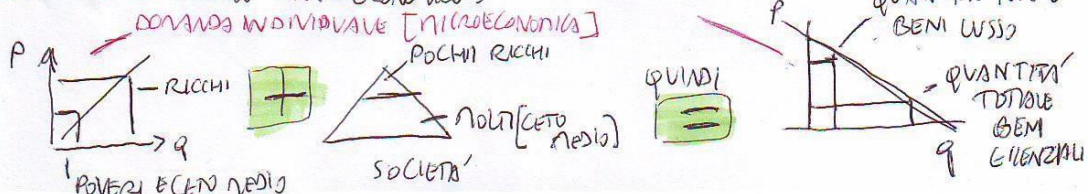 DOMANDA INDIVIDUALE [MICROECONOMICA]
P
q
RICCHI
POVERI E CETO MEDIO
+
POCHI RICCHI
MOLTI [CETO
MEDIO]
SOCIETÀ
QUINDI
=
P
BENI LUSSO
QUANTITÀ
TOTALE
BENI
ESSENZIALI
q